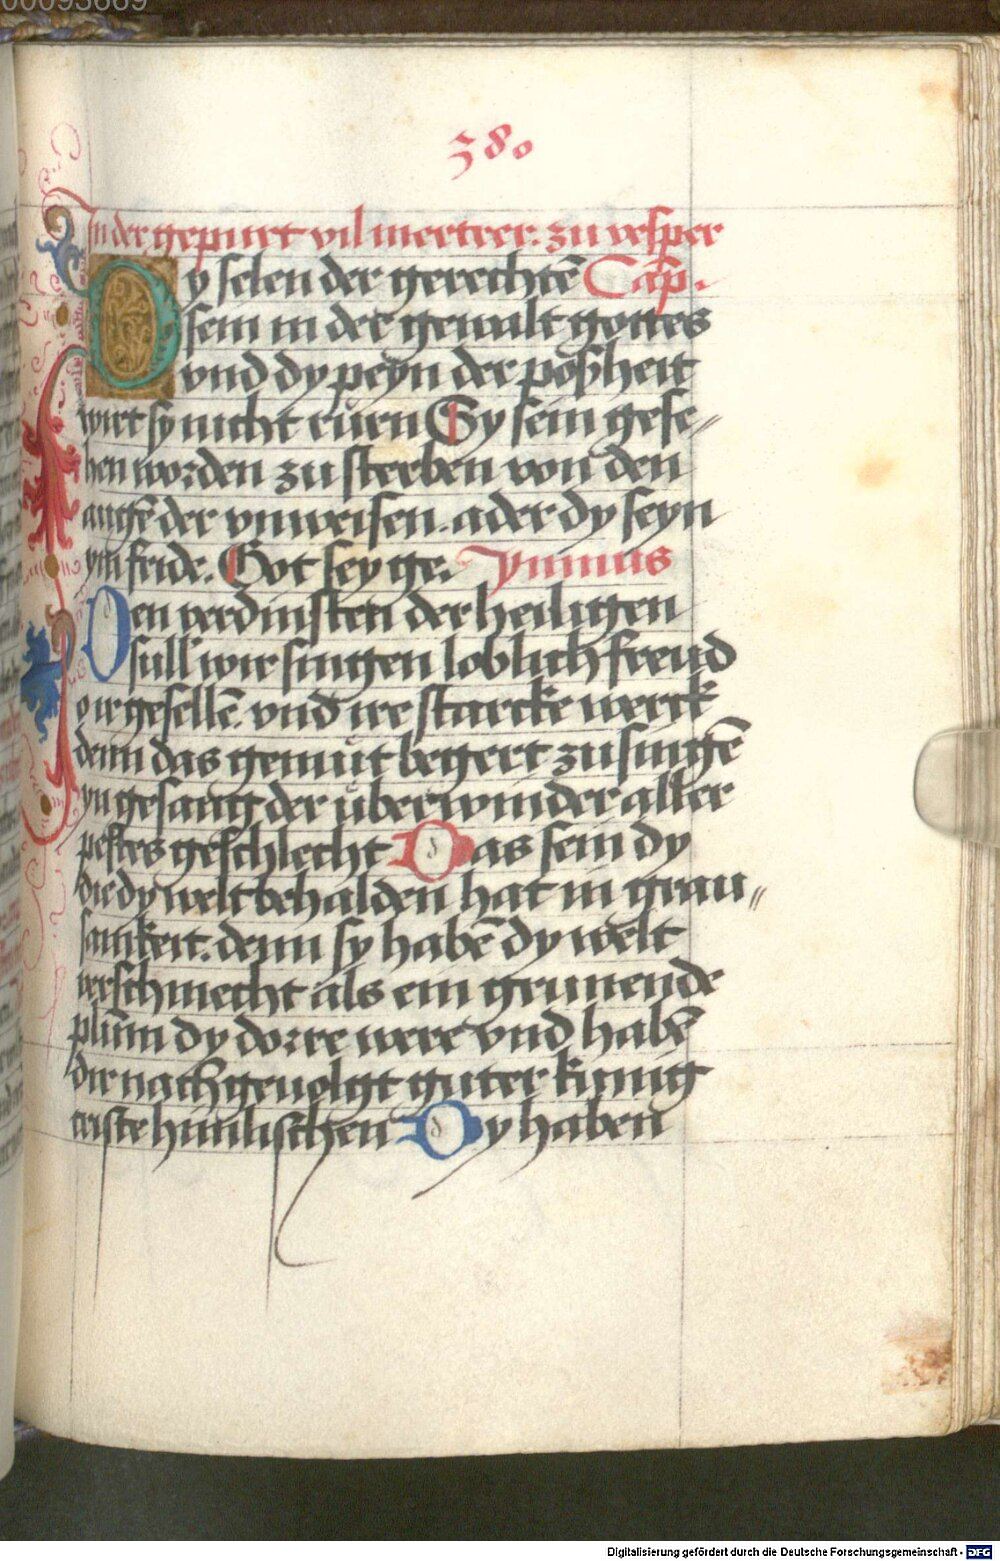 00093669
380
In der gepurt vil mertrer. zu vesper
Dy selen der gerechtē Cap.
sein in der gewalt gottes
vnd dy peyn der posheit
wirt sy nicht rüren Sy sein gese-
hen worden zu sterben von den
augē der vnweisen. ader dy seyn
ym fride. Got sey ge. Ymnus
Den verdinsten der heiligen
sull wir singen loblich freud
o ir gesellē. vnd ire starcke werck
denn das gemüt begert zu singē
yn gesang der überwinder aller
pestes geschlecht Das sein dy
die dy welt behalden hat in grau-
samkeit. denn sy habē dy welt
verschmecht als ein grunende
plum dy dorre were vnd habē
dir nachgeuolgt guter kunig
criste himlischen Dy haben
Digitalisierung gefördert durch die Deutsche Forschungsgemeinschaft - DFG